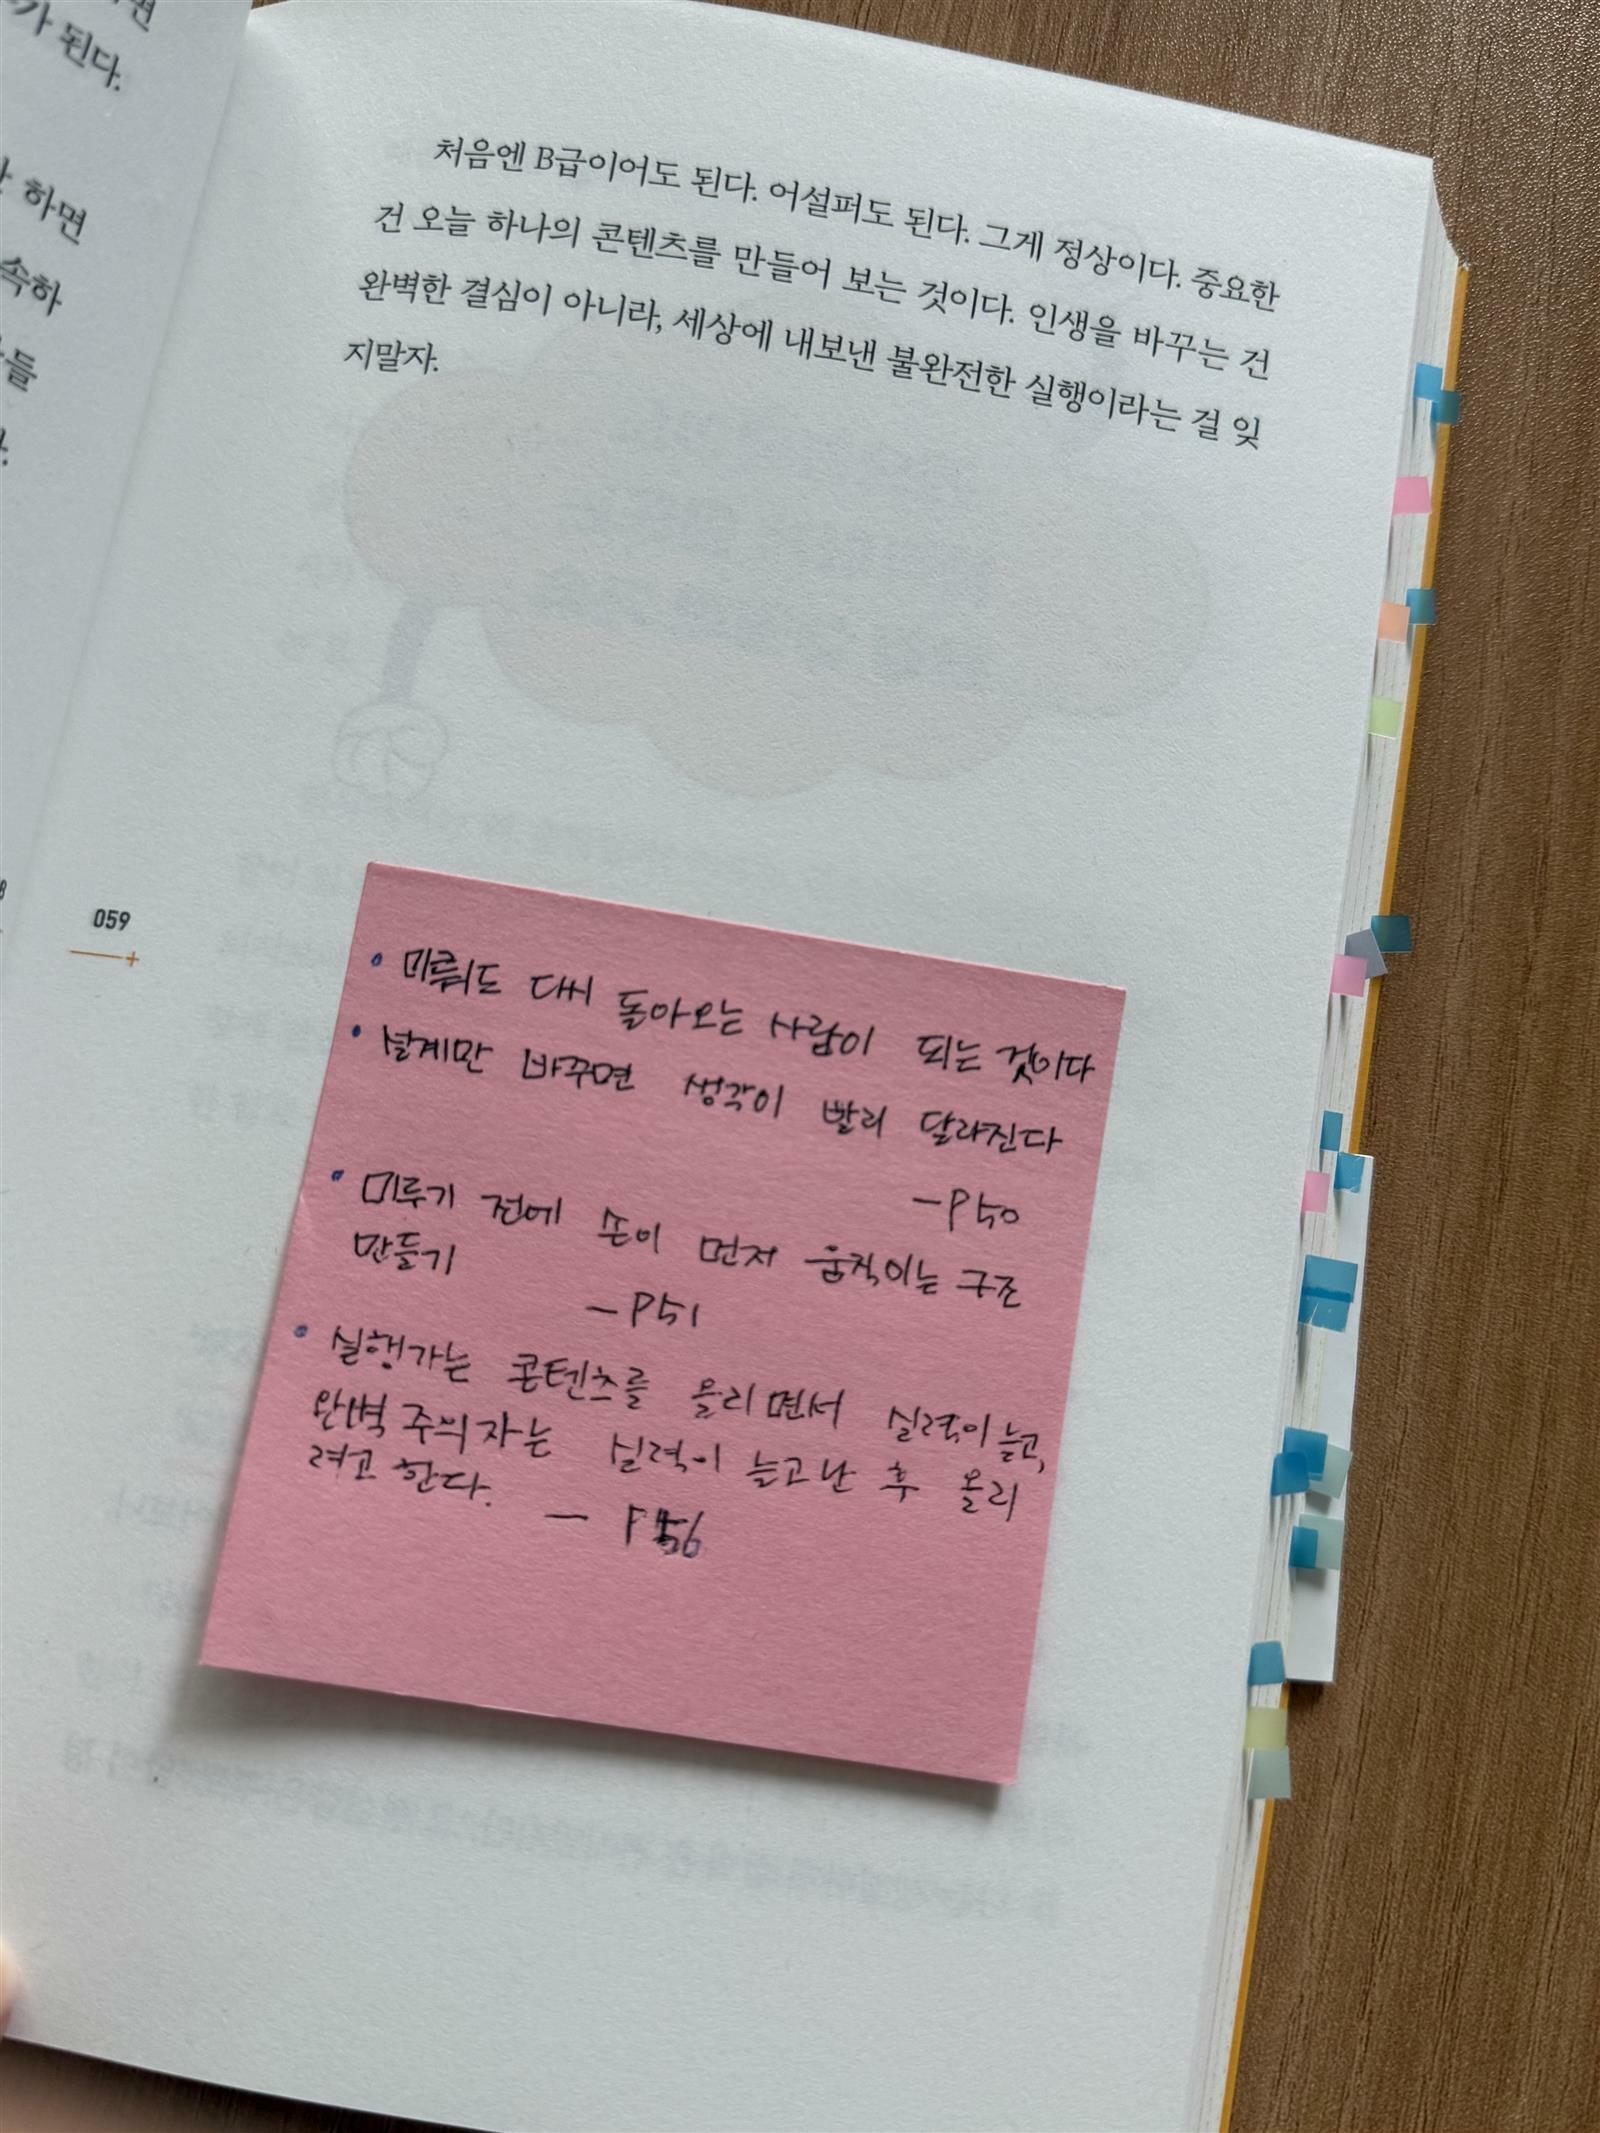 면
가 된다.
하면
속하
들
처음엔 B급이어도 된다. 어설퍼도 된다. 그게 정상이다. 중요한
건 오늘 하나의 콘텐츠를 만들어 보는 것이다. 인생을 바꾸는 건
완벽한 결심이 아니라, 세상에 내보낸 불완전한 실행이라는 걸 잊
지말자.
059
• 미뤄도 다시 돌아오는 사람이 되는 것이다
• 설계만 바꾸면 생각이 빨리 달라진다
- P50
• 미루기 전에 손이 먼저 움직이는 구조
만들기
- P51
• 실행가는 콘텐츠를 올리면서 실력이 늘고,
완벽주의자는 실력이 늘고난 후 올리
려고 한다.
- P56